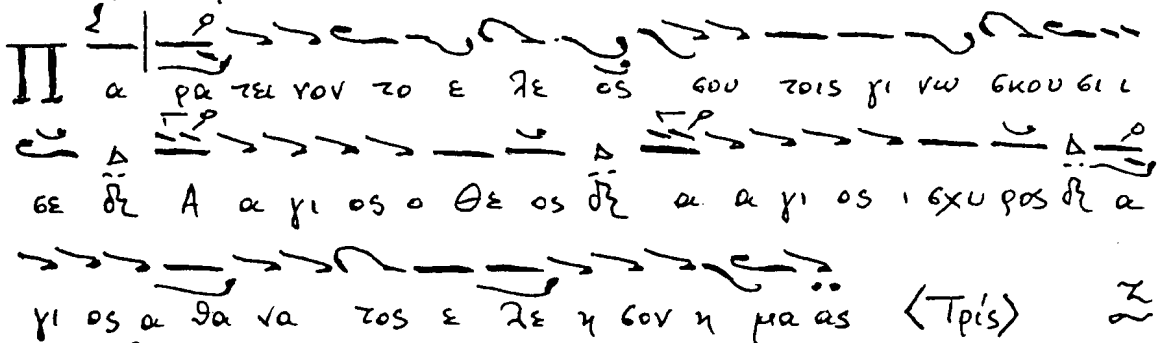 Πα ρα τει νον το ε λε ος σου τοις γι νω σκου σι ι
σε δη Α α γι ος ο Θε ος δη α α γι ος ι σχυ ρος δη α
γι ος α θα να τος ε λε η σον η μα ας ⟨Τρίς⟩